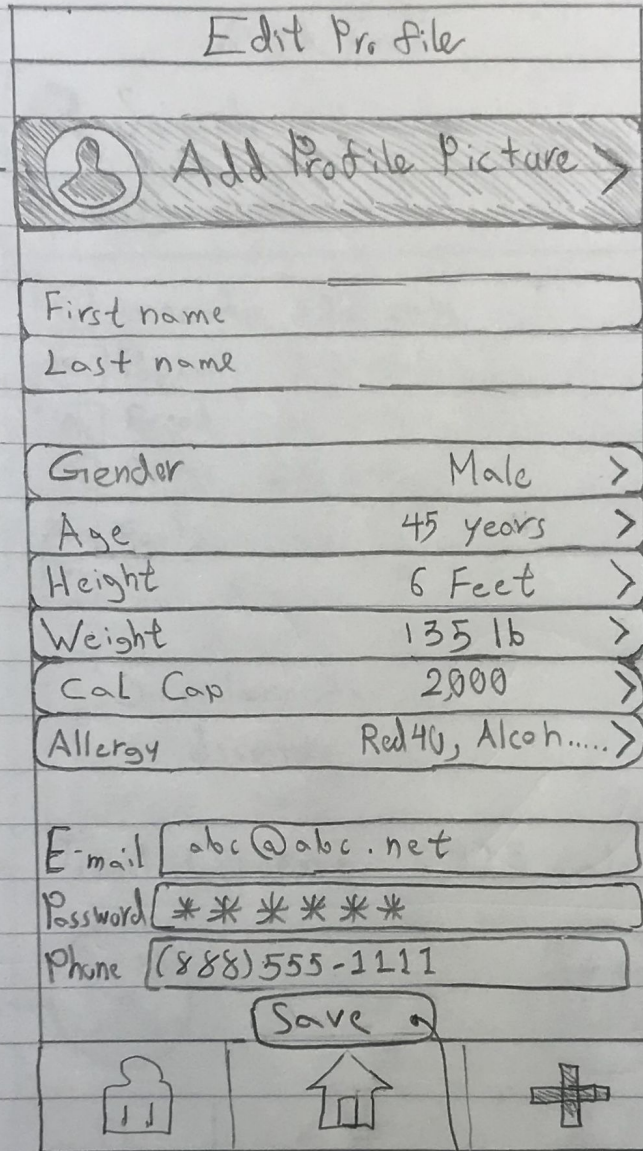 Edit Profile
Add Profile Picture >
First name
Last name
Gender Male >
Age 45 years >
Height 6 Feet >
Weight 135 lb >
Cal Cap 2,000 >
Allergy Red40, Alcoh..... >
E-mail abc@abc.net
Password ******
Phone (888)555-1111
Save